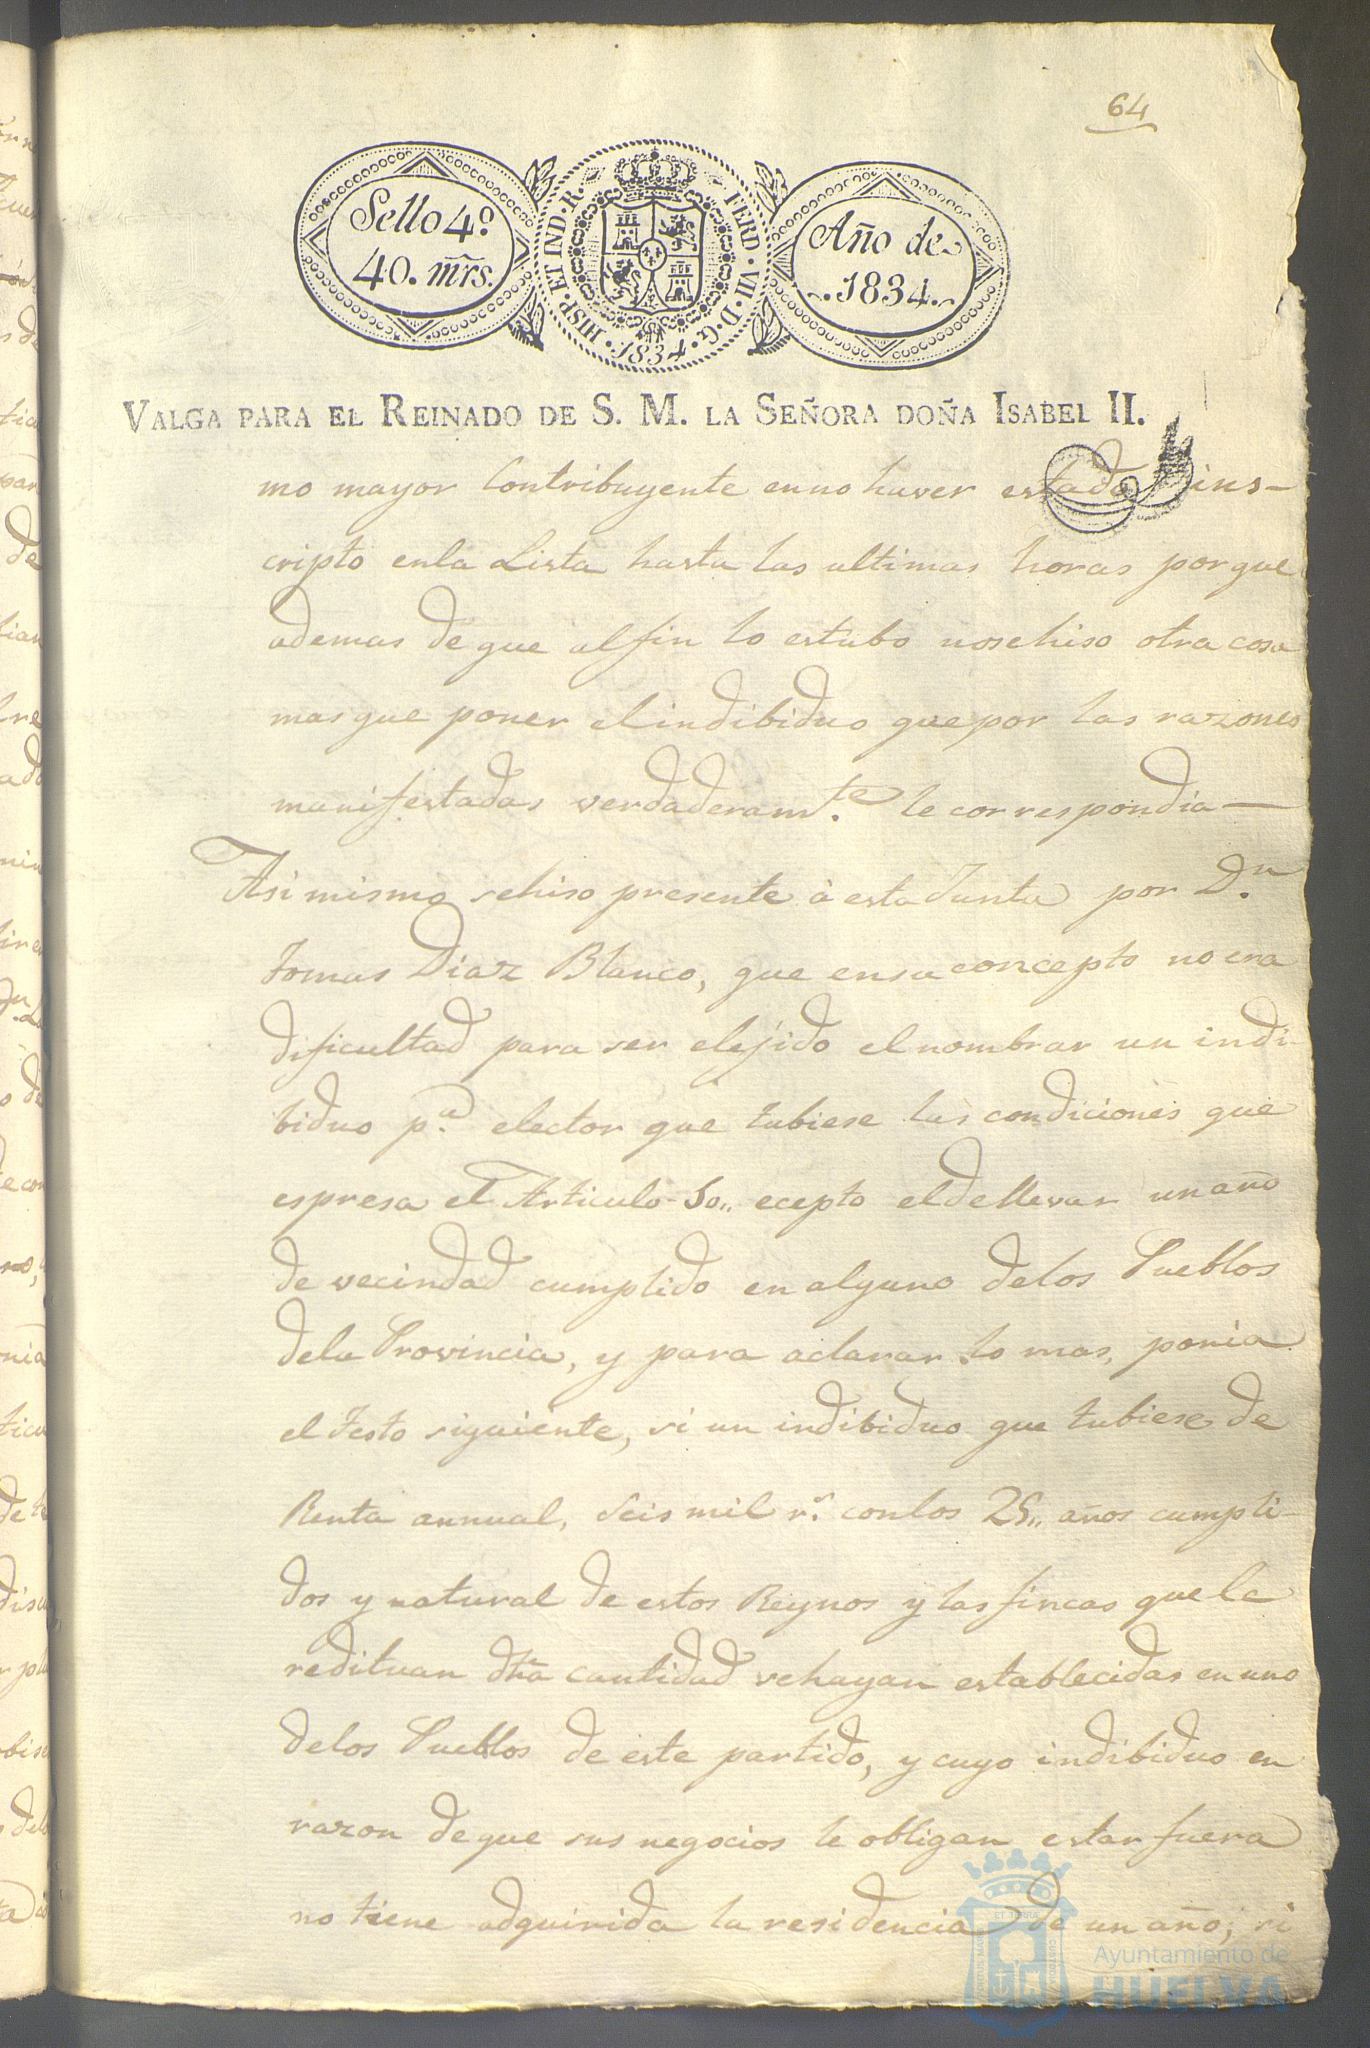 64
Sello 4º
40. mrs.
HISP. ET IND. R.
FERD. VII. D. G.
. 1834 .
Año de
. 1834 .
VALGA PARA EL REINADO DE S. M. LA SEÑORA DOÑA ISABEL II.
mo mayor Contribuyente enno haver estado ins-
cripto enla Lista hasta las ultimas horas porque
ademas de que alfin lo estubo nosehiso otra cosa
masque poner elindibiduo quepor las razones
manifestadas verdaderamte. le correspondia—
Asi mismo sehiso presente á esta Junta por Dn.
tomas Diaz Blanco, que ensu concepto no era
dificultad para ser elejido el nombrar un indi-
biduo pa. elector que tubiese las condiciones que
espresa el Articulo - 50,, ecepto eldellevar un año
de vecindad cumplido en alguno delos Pueblos
dela Provincia, y para aclarar lo mas, ponia
el testo siguiente, si un indibiduo que tubiese de
Renta annual, seis mil rs. conlos 25,, años cumpli-
dos y natural de estos Reynos y las fincas que le
redituan dha cantidad sehayan establecidas en uno
delos Pueblos de este partido, y cuyo indibiduo en
razon deque sus negocios le obligan estar fuera
no tiene adquirida la residencia de un año; si
Ayuntamiento de
HUELVA